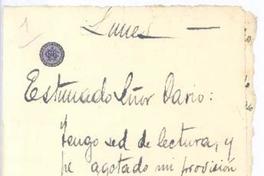 1
Lunes —
Estimado Señor Dario:
tengo sed de lectura, y
he agotado mi provisión